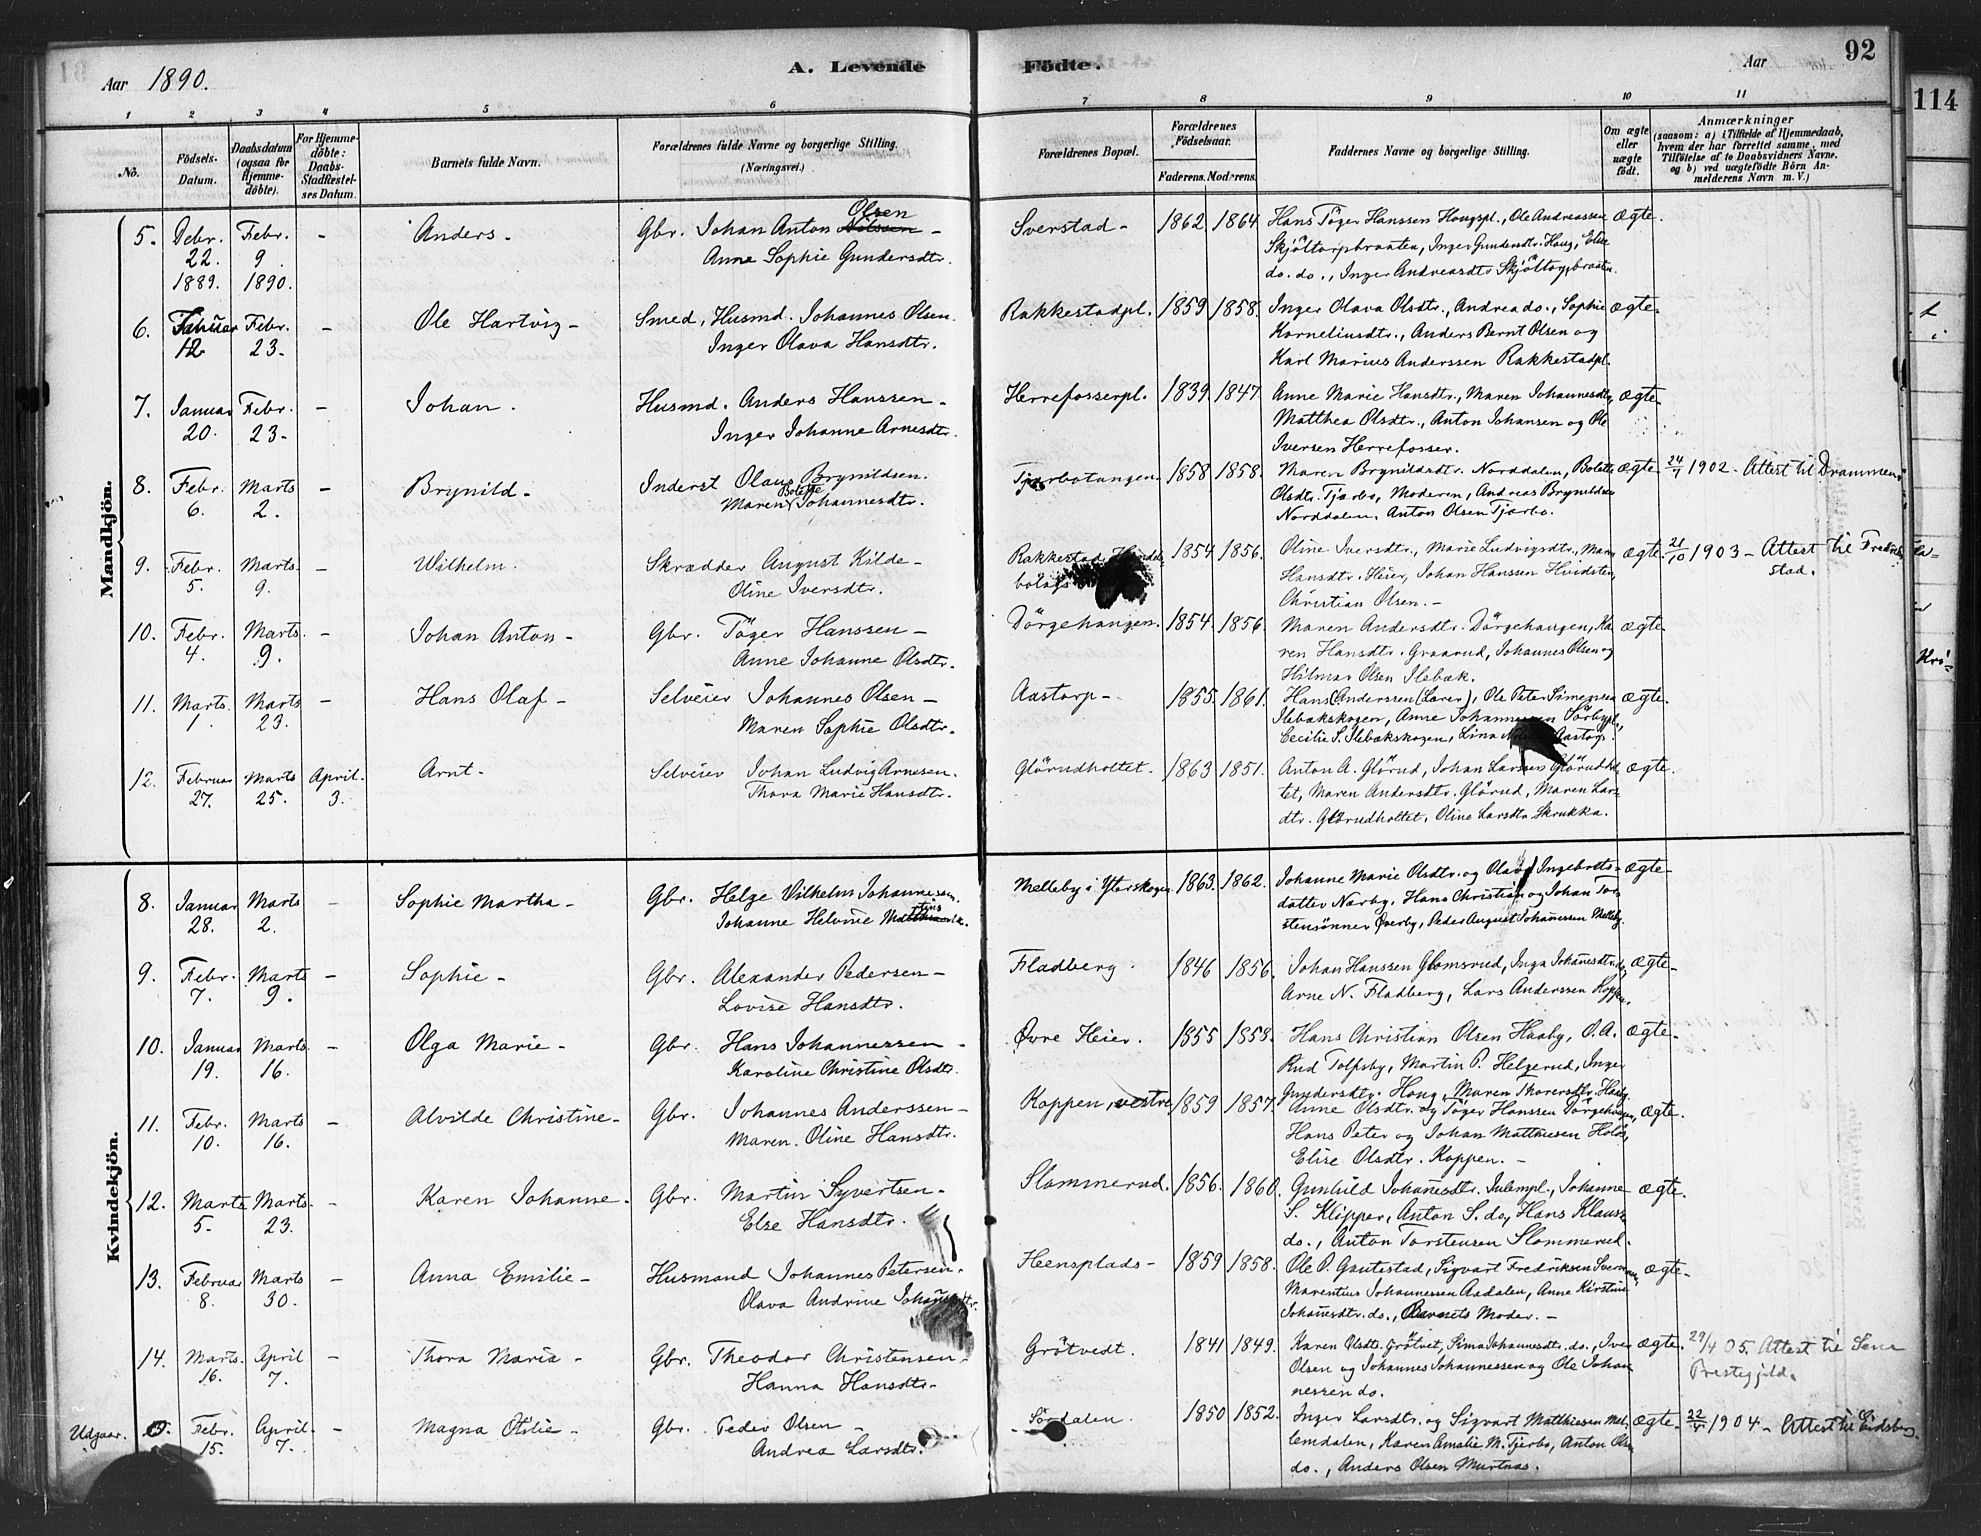 Aar 1890. A. Levende Födte. Aar 92
114
1 2 3 4 5 6 7 8 9 10 11
No. Födsels-Datum. Daabsdatum (ogsaa for Hjemme-döbte). For Hjemme-döbte: Daabs-Stadfæstel-ses Datum. Barnets fulde Navn. Forældrenes fulde Navne og borgerlige Stilling. (Næringsvei.) Forældrenes Bopæl. Forældrenes Födselsaar. Faderens. Moderens. Faddernes Navne og borgerlige Stilling. Om ægte eller uægte födt. Anmærkninger (saasom: a) i Tilfælde af Hjemmedaab, hvem der har forrettet samme, med Tilföielse af to Daabsvidners Navne, og b) ved uægtefödte Börn Anmelderens Navn m. V.)
Mandkjön.
5. Debr. Febr. - Anders - Gbr. Johan Anton Nilssen Olsen - Sverstad - 1862 1864 Hans Töger Hanssen Hougspl., Ole Andreassen ægte.
22. 9. Anne Sophie Gundersdtr. Skjöltorpbraaten, Inger Gundersdtr. Houg, Else
1889. 1890. do. do., Inger Andreasdtr Skjöltorpbraaten.
6. Januar Febr. - Ole Hartvig - Smed, Husmd. Johannes Olsen. Rakkestadpl. 1859 1858. Inger Olava Olsdtr., Andrea do., Sophie ægte.
12 23. Inger Olava Hansdtr. Korneliusdtr., Anders Bernt Olsen og
Karl Marius Anderssen Rakkestadpl.
7. Januar Febr. - Johan. Husmd. Anders Hanssen - Herrefosserpl. 1839. 1847. Anne Marie Hansdtr., Maren Johannesdtr, ægte.
20. 23. Inger Johanne Arnesdtr. Matthea Olsdtr., Anton Johansen og Ole
Iversen Herrefosser.
8. Febr. Marts - Brynild - Inderst Olaus Brynildsen. Tjærbotangen. 1858 1858. Maren Brynildsdtr. Norddalen, Bolette ægte. 24/7 1902 - Attest til Drammen
6. 2. Maren Bolette Johannesdtr. Olsdtr. Tjærbo, Moderen, Andreas Brynildsen
Norddalen, Anton Olsen Tjærbo.
9. Febr. Marts. - Wilhelm. Skrædder August Kilde - Rakkestad 1854 1856. Oline Iversdtr., Marie Ludvigsdtr., Maren ægte. 21/10 1903 - Attest til Fredrik-
5. 9. Oline Iversdtr. Hansdtr. Heier, Johan Hanssen Hvidsten, stad.
Christian Olsen. -
10. Febr. Marts. - Johan Anton - Gbr. Töger Hanssen - Dörgehaugen. 1854. 1856. Maren Andersdtr. Dörgehaugen, Ka ægte.
4. 9. Anne Johanne Olsdtr. ren Hansdtr. Graarud, Johannes Olsen og
Hilmar Olsen Ilebæk.
11. Marts. Marts - Hans Olaf - Selveier Johannes Olsen - Aastorp - 1855. 1861. Hans Anderssen (Lærer), Ole Peter Simensen ægte.
1. 23. Maren Sophie Olsdtr. Ilebækskogen, Anne Johannessen Sörbypl.,
Cecilie S. Ilebækskogen, Lina Aastorp.
12. Februar Marts April. Arnt. Selveier Johan Ludvig Arnesen. Glörudholtet. 1863 1851. Anton A. Glörud, Johan Larssen Glörudhol ægte.
27. 25. 3. Thora Marie Hansdtr. tet, Maren Andersdtr. Glörud, Maren Lars
dtr. Glörudholtet, Oline Larsdtr Skrukka.
Kvindekjön.
8. Januar Marts - Sophie Martha - Gbr. Helge Wilhelm Johannessen. Melleby i Ytterskogen 1863. 1862. Johanne Marie Olsdtr. og Olava Ingebrets- ægte
28. 2. Johanne Helvine datter Nærby, Hans Christian og Johan Tor
stensönner Överby, Peder August Johannessen Melleby.
9. Febr. Marts - Sophie - Gbr. Alexander Pedersen - Fladberg. 1846 1856. Johan Hanssen Glomsrud, Inga Johannesdtr. do, ægte.
7. 9. Lovise Hansdtr. Arne N. Fladberg, Lars Anderssen Koppen.
10. Januar Marts. - Olga Marie - Gbr. Hans Johannessen - Øvre Heier. 1855 1858. Hans Christian Olsen Haaby, O. A. ægte.
19. 16. Karoline Christine Olsdtr. Rud Tolpsby, Martin P. Helgerud, Inger
Gundersdtr. Houg, Maren Thorersdtr. Haaby.
11. Febr. Marts - Alvilde Christine - Gbr. Johannes Anderssen - Koppen, vestre 1859 1857. Anne Olsdtr. og Töger Hanssen Dörgehaugen, ægte.
10. 16. Maren Oline Hansdtr. Hans Peter og Johan Matthiesen Holös,
Elise Olsdtr. Koppen. -
12. Marts Marts. - Karen Johanne - Gbr. Martin Syvertsen - Slommerud. 1856. 1860. Gunhild Johannesdtr. Julempl., Johanne ægte.
5. 23. Else Hansdtr. S. Klipper, Anton S. do, Hans Klauss.
do., Anton Torstensen Slommerud.
13. Februar Marts - Anna Emilie - Husmand Johannes Petersen. Heensplads - 1859 1858. Ole P. Gautestad, Sigvart Fredriksen ægte.
8. 30. Olava Andrine Johannesdtr. Marentius Johannessen Aadalen, Anne Kirstine
Johannesdtr. do., Barnets Moder. -
14. Marts. April - Thora Maria - Gbr. Theodor Christensen - Grötvedt. 1841 1849. Karen Olsdtr. Grötvet, Sima Johannesdtr. do., Iver ægte. 29/4 05. Attest til
16. 7. Hanna Hansdtr. Olsen og Johannes Johannessen og Ole Johan Prestegjeld.
nessen do.
Udgaar. 15. Febr. April. - Magna Otilie - Gbr. Peder Olsen - Sördalen. 1850 1852. Inger Larsdtr. og Sigvart Matthiesen Mel ægte. 22/4 1904 - Attest til Eidsberg.
15. 7. Andrea Larsdtr. lemdalen, Karen Amalie M. Tjerbo, Anton Olsen
do., Anders Olsen Murtnæs.